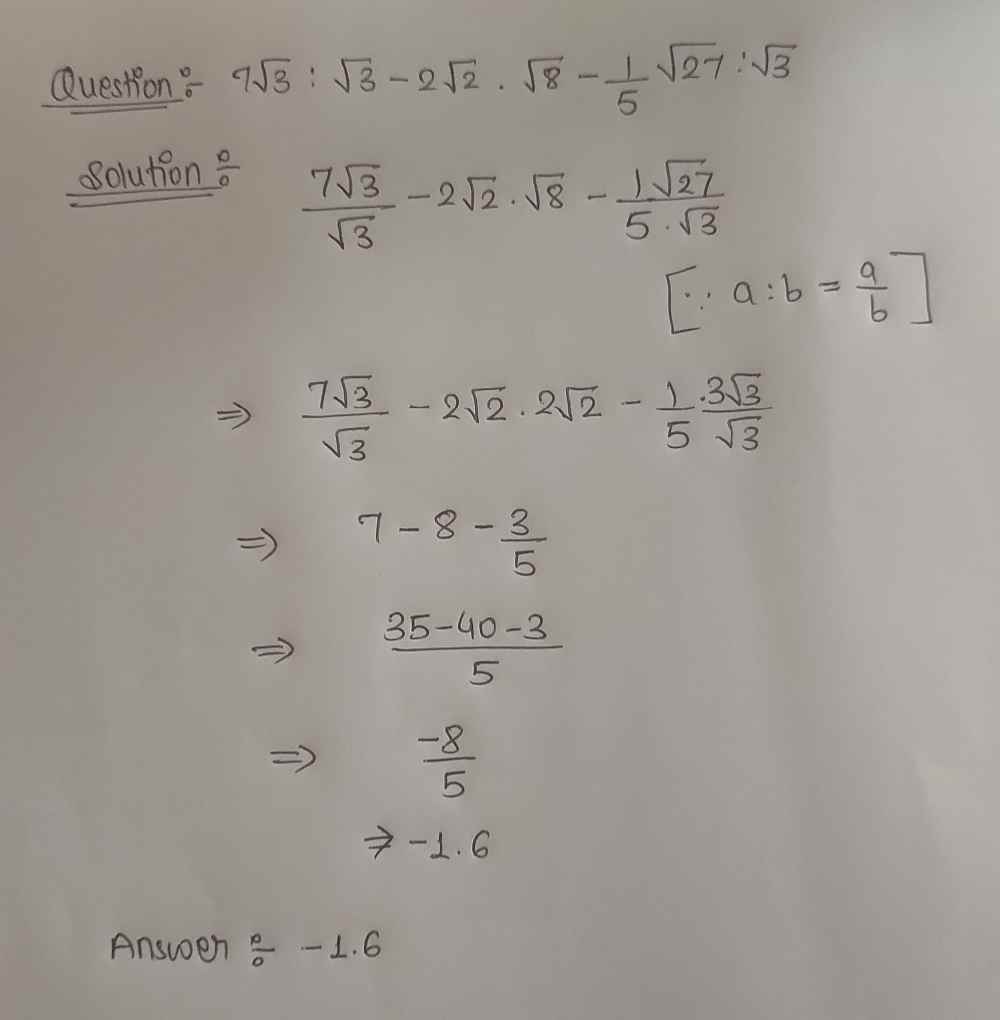 Question :- 7√3 : √3 - 2√2 . √8 - 1/5 √27 : √3
Solution :- 7√3/√3 - 2√2 . √8 - 1√27/5.√3
[∵ a:b = a/b]
⇒ 7√3/√3 - 2√2 . 2√2 - 1/5 . 3√3/√3
⇒ 7 - 8 - 3/5
⇒ 35-40-3/5
⇒ -8/5
⇒ -1.6
Answer :- -1.6